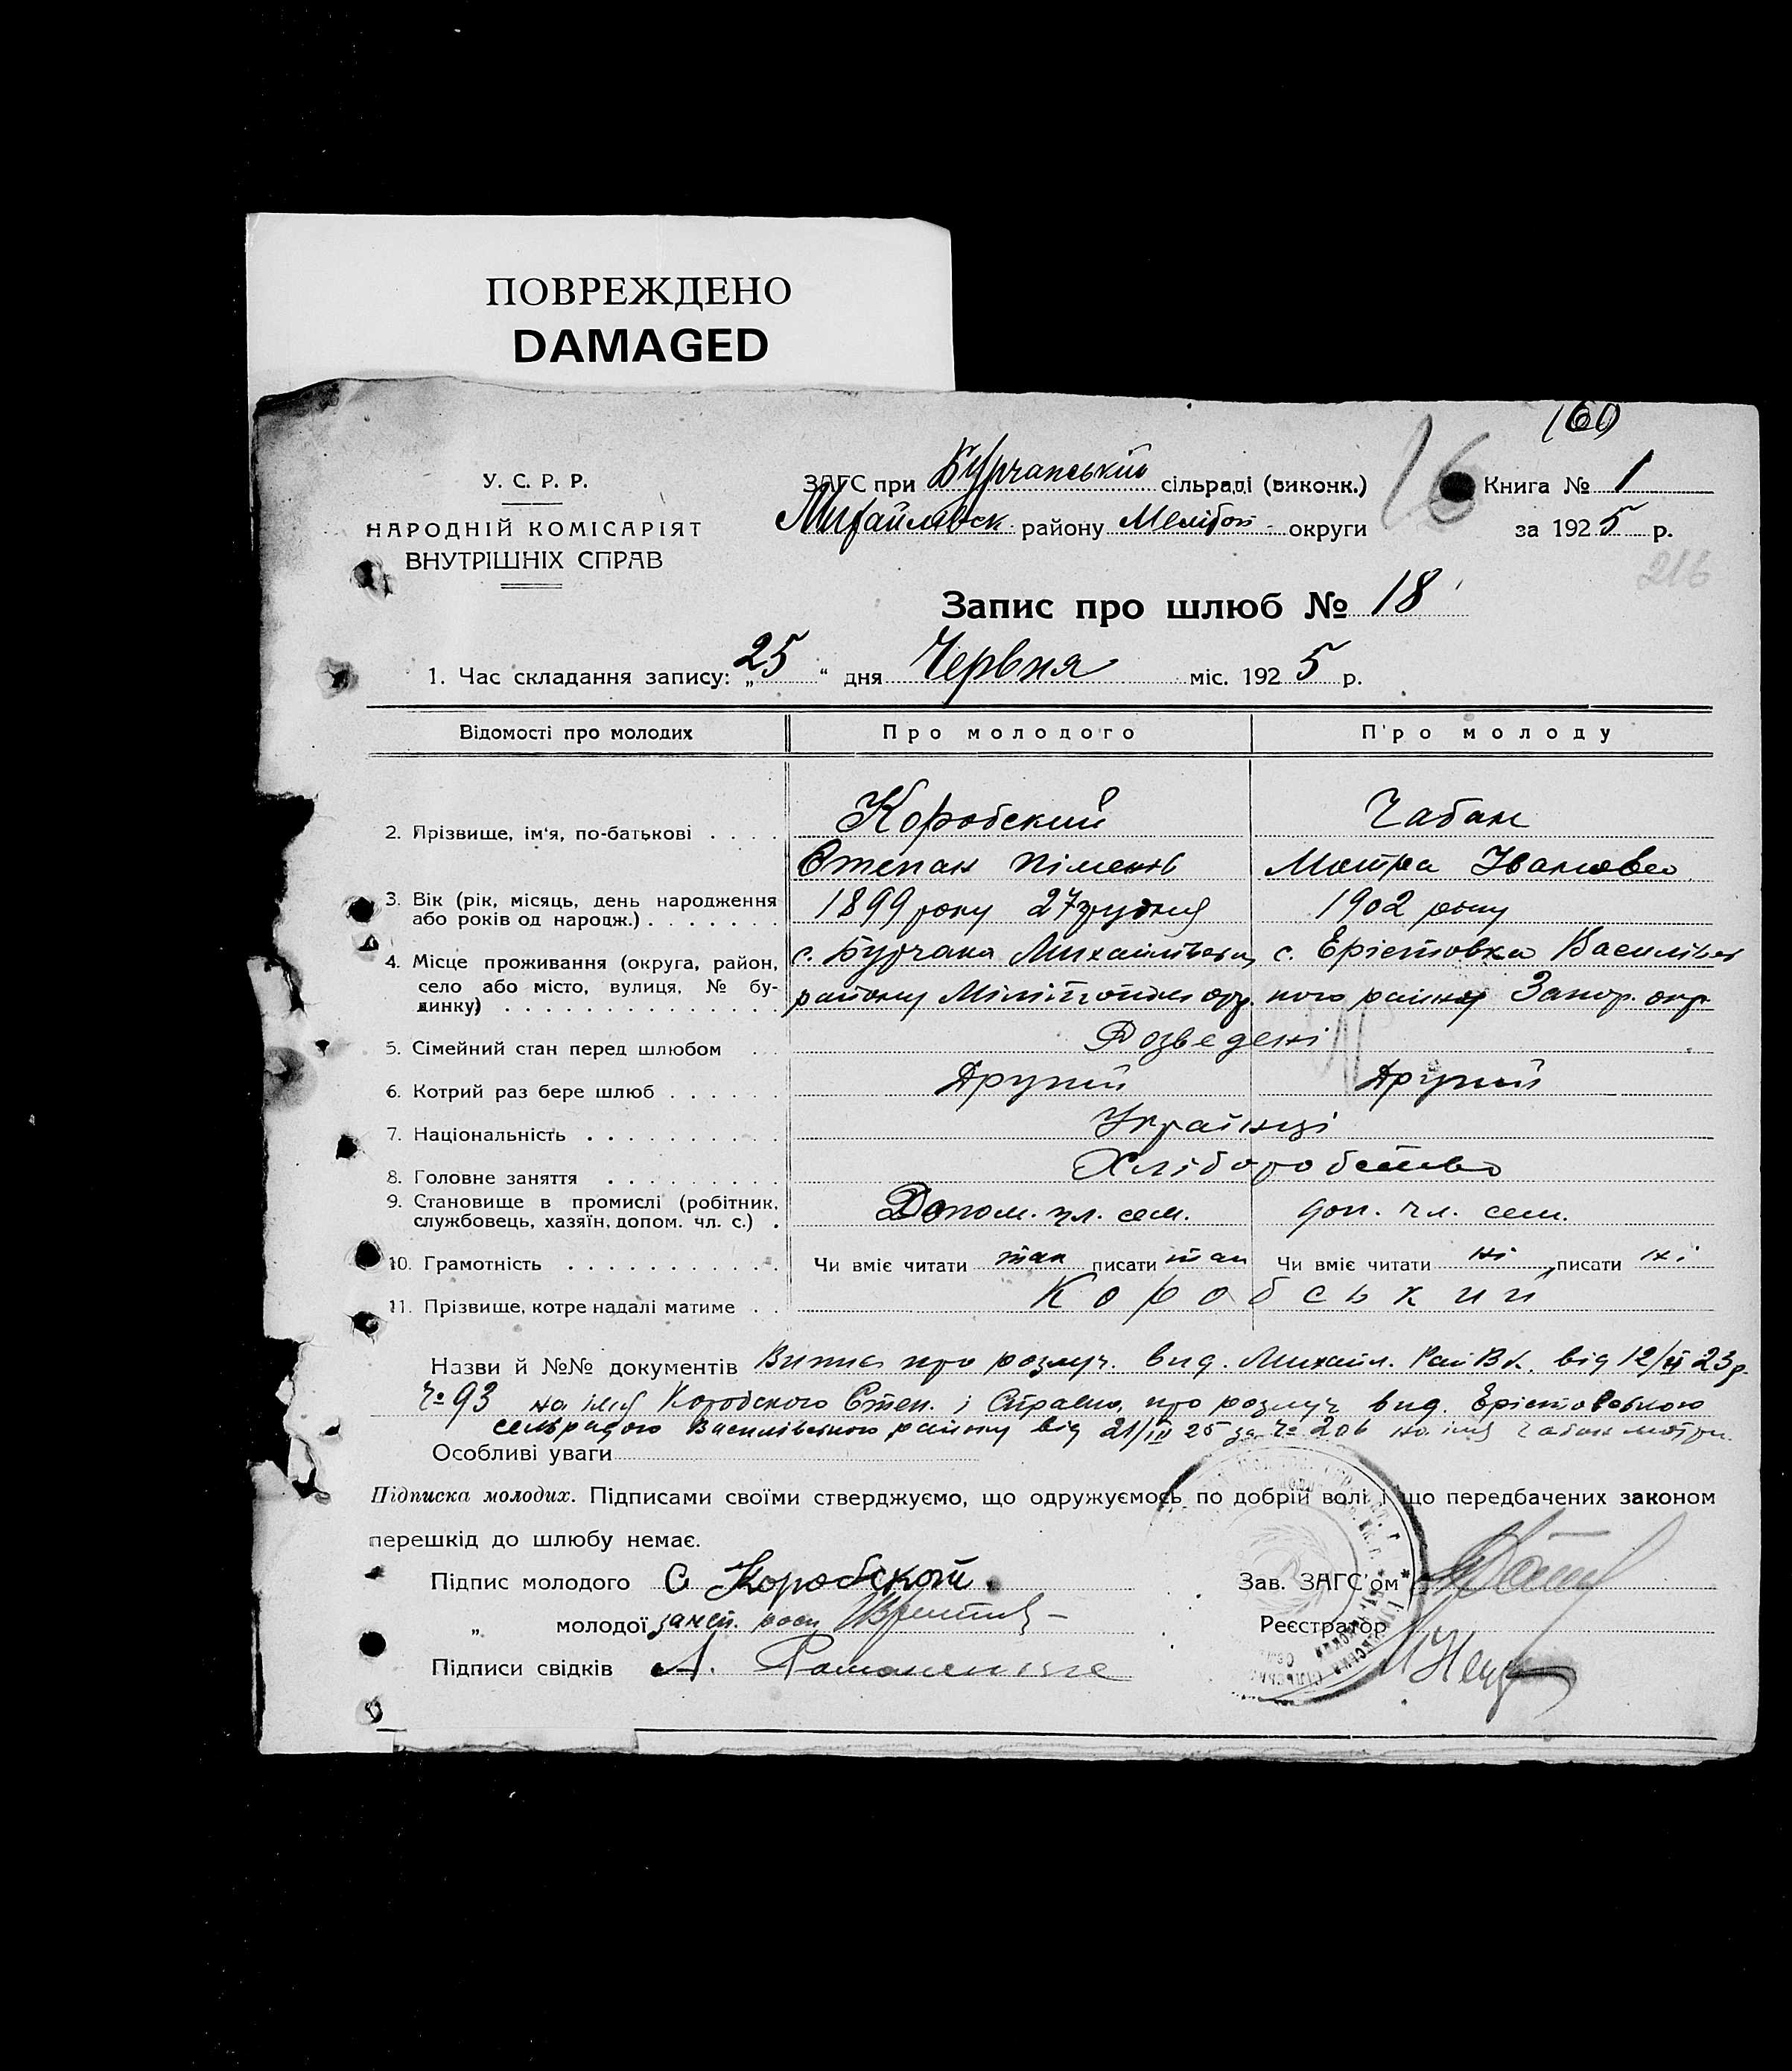 ПОВРЕЖДЕНО
DAMAGED
160
У. С. Р. Р.
НАРОДНІЙ КОМІСАРІЯТ
ВНУТРІШНІХ СПРАВ
ЗАГС при Бурчанський сільраді (виконк.)
Михайлівськ району Меліт. округи
16
Книга № 1
за 1925 р.
216
Запис про шлюб № 18
1. Час складання запису: „25“ дня Червня міс. 1925 р.
Відомості про молодих Про молодого Про молоду
2. Прізвище, ім'я, по-батькові . . . . Коробский Чабан
Степан Піменів Мотра Іванова
3. Вік (рік, місяць, день народження або років од народж.) . . . . . . . 1899 року 27 грудня 1902 року
4. Місце проживання (округа, район, село або місто, вулиця, № будинку) . . . с. Бурчака Михайлівськ с. Ерістовка Василівсь
району Мелітопільс окр. кого району Запор. окр.
5. Сімейний стан перед шлюбом . . . Розведені
6. Котрий раз бере шлюб . . . . . . Другий Другий
7. Національність . . . . . . . . . Українці
8. Головне заняття . . . . . . . . Хліборобство
9. Становище в промислі (робітник, службовець, хазяїн, допом. чл. с.) . Допом. чл. сем. доп. чл. сем.
10. Грамотність . . . . . . . . . . Чи вміє читати так писати так Чи вміє читати ні писати ні
11. Прізвище, котре надалі матиме . . Коробський
Назви й №№ документів Витяг про розлуч. вид. Михайл. Рай В.К. від 12/ 23 р.
№ 93 на імя Коробского Степ. і Справка про розлуч вид. Ерістовською
сельрадою Василівського району від 21/ 25 за № 206 на імя Чабан Мотри.
Особливі уваги
Підписка молодих. Підписами своїми стверджуємо, що одружуємось по добрій волі і що передбачених законом
перешкід до шлюбу немає.
Підпис молодого С Коробской. Зав. ЗАГС'ом
„ молодої Реєстратор
Підписи свідків А.